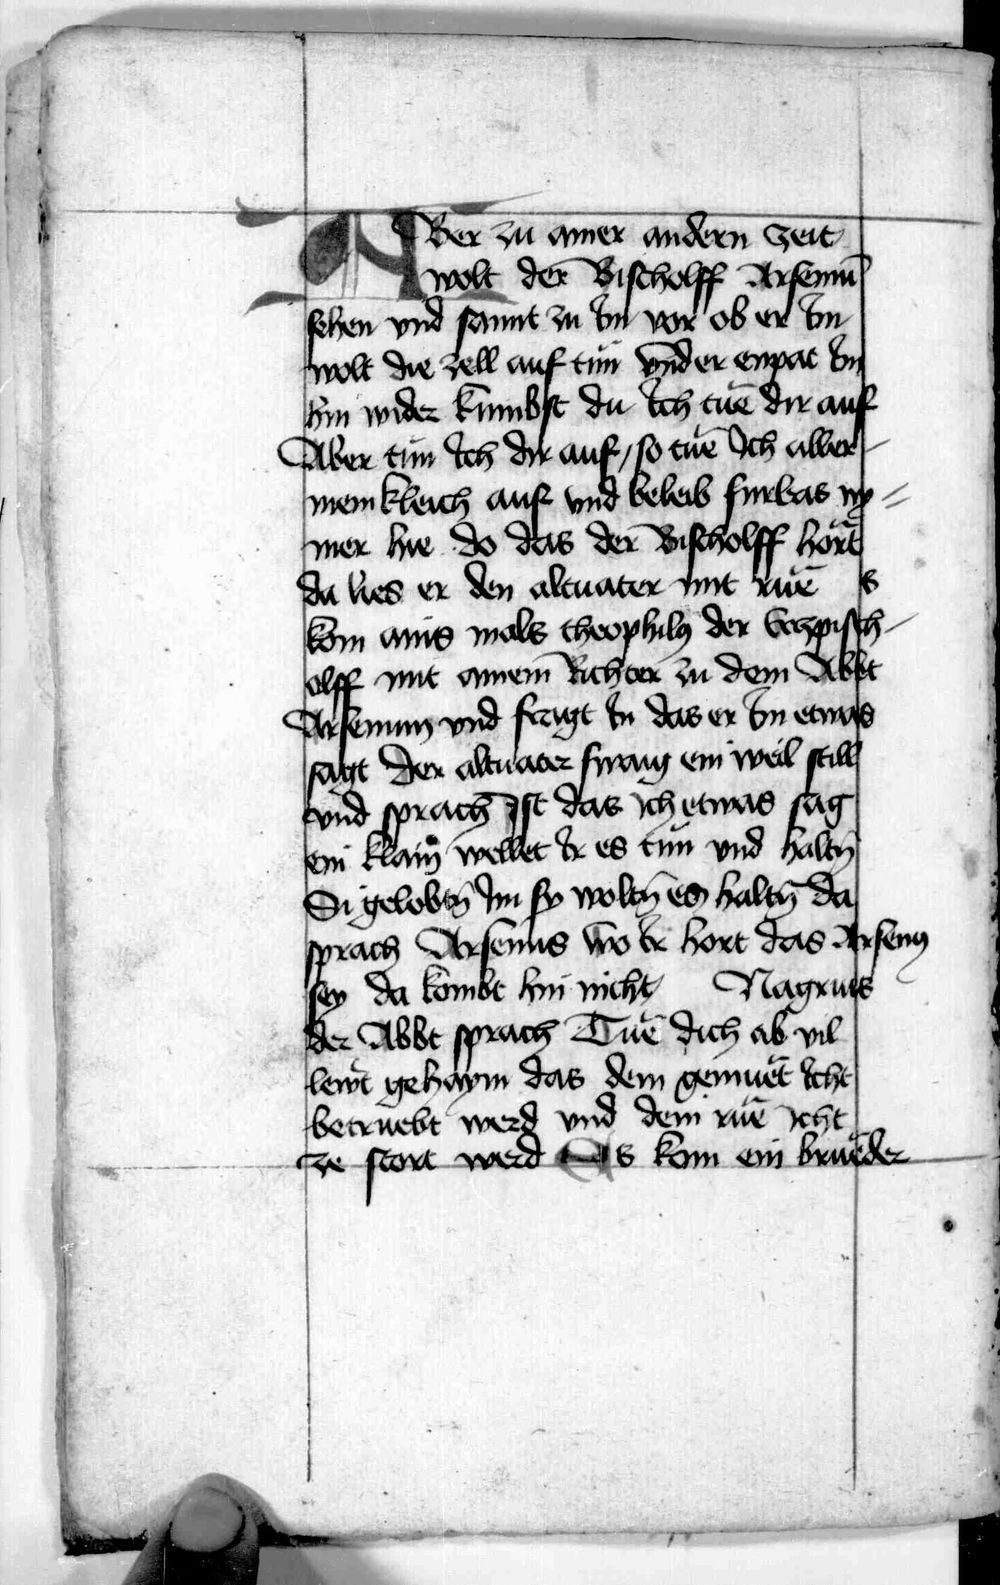 ABer zu ainer andern zeit
wolt der Bischolff Arseniū
sehen vnd sannt zu Im vor ob er Im
wolt die zell auf tün vnd er enpat Im
hin wider kumbst du Ich tuē dir auf
Aber tün Ich dir auf / so tuē Ich aller-
menkleich auf vnd beleib furbas ny=
mer hie do das der Bischolff hört
da lies er den altuater mit ruē s
kom ains mals theophilꝰ der Erczpisch-
olff mit ainem Richter zu dem Abbt
Arsenium vnd fragt In das er Im etwas
sagt der altuater swaig ein weil still
vnd sprach Ist das ich etwas sag
ein klain wellet Ir es tün vnd haltn̄
Si gelobtn̄ Im sy woltn̄ es haltn̄ da
sprach Arsenius wo Ir hort das Arsenꝰ
sey da kombt hin nicht Nagrius
der Abbt sprach Tuē dich ab vil
lewt gehaym das dem gemuēt Icht
betruebt werd vnd dein ruē Icht
ze stort werd Es kom ein bruēder